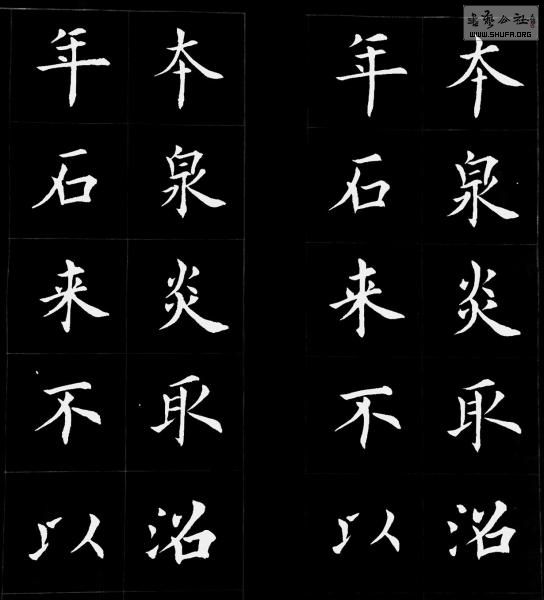 書藝公社
WWW.SHUFA.ORG
本泉炎取沼
年石来不以
本泉炎取沼
年石来不以